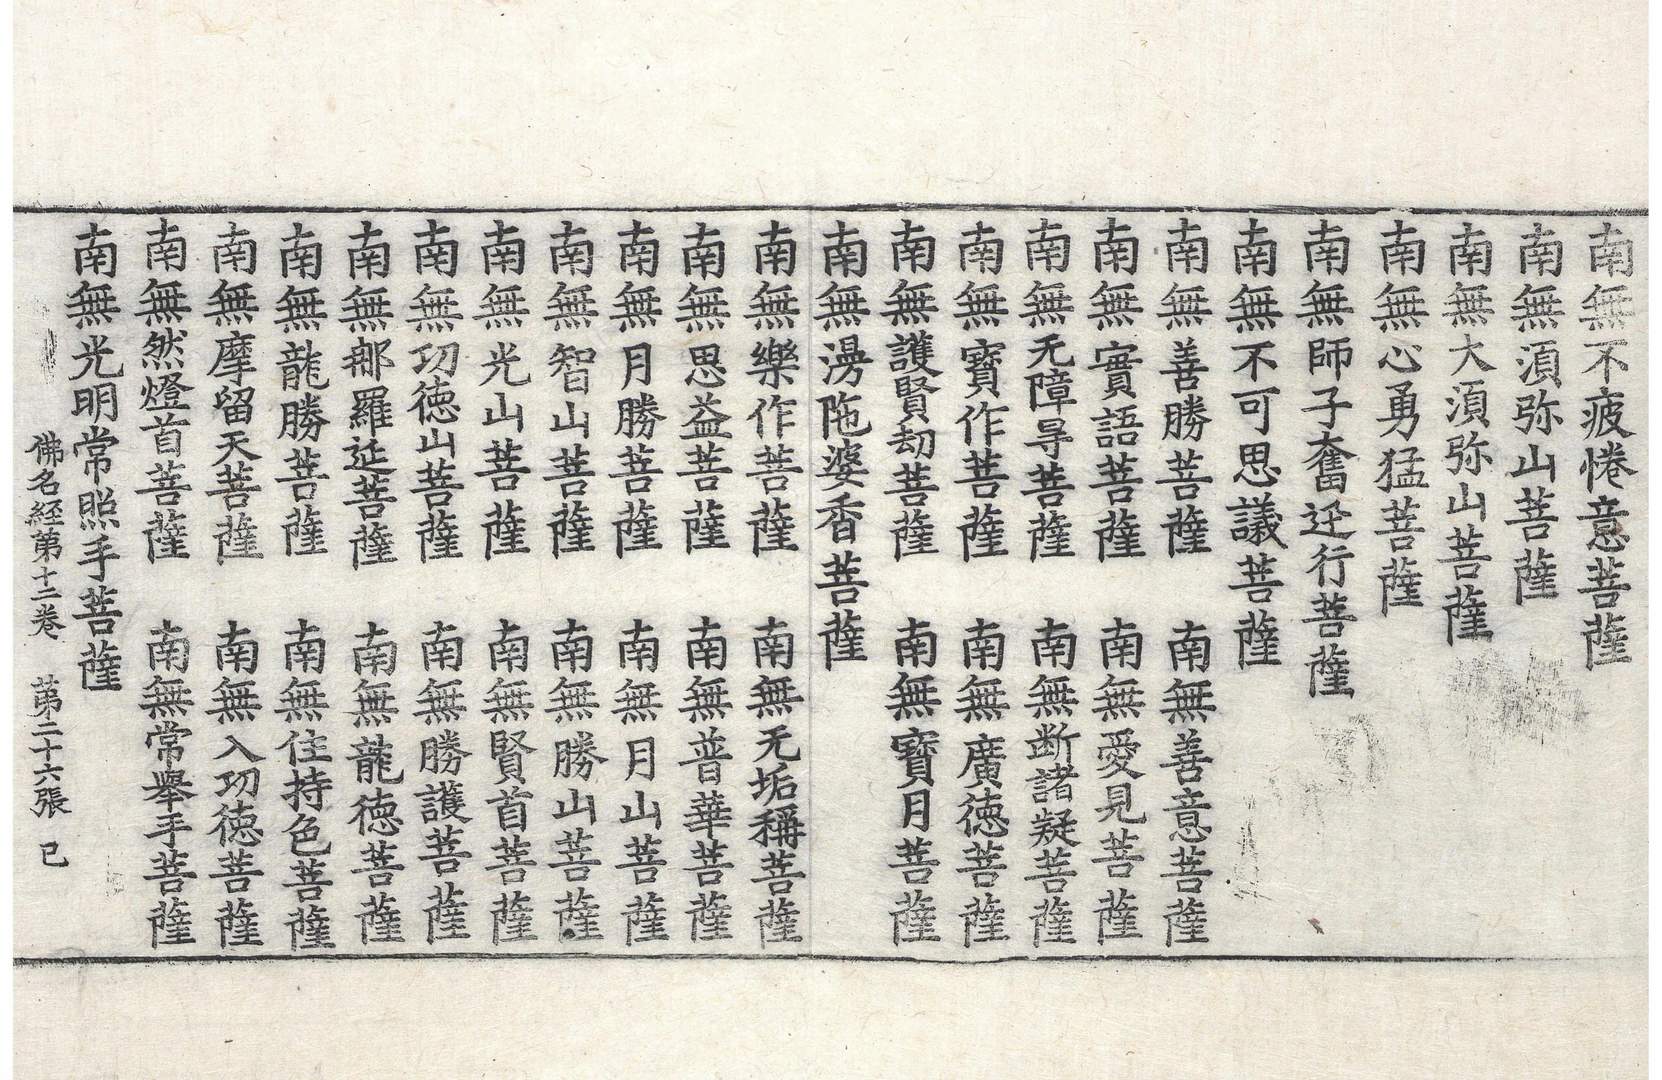 南無不疲惓意菩薩
南無湏弥山菩薩
南無大湏弥山菩薩
南無心勇猛菩薩
南無師子奮迅行菩薩
南無不可思議菩薩
南無善勝菩薩　南無善意菩薩
南無實語菩薩　南無愛見菩薩
南無无障㝵菩薩　南無断諸凝菩薩
南無寶作菩薩　南無廣徳菩薩
南無護賢劫菩薩　南無寶月菩薩
南無湯陁婆香菩薩
南無樂作菩薩　南無无垢稱菩薩
南無思益菩薩　南無普華菩薩
南無月勝菩薩　南無月山菩薩
南無智山菩薩　南無勝山菩薩
南無光山菩薩　南無賢首菩薩
南無功徳山菩薩　南無勝護菩薩
南無那羅延菩薩　南無龍徳菩薩
南無龍勝菩薩　南無住持色菩薩
南無摩留天菩薩　南無入功徳菩薩
南無然燈首菩薩　南無常舉手菩薩
南無光明常照手菩薩
佛名経第十二巻　第二十六張　己